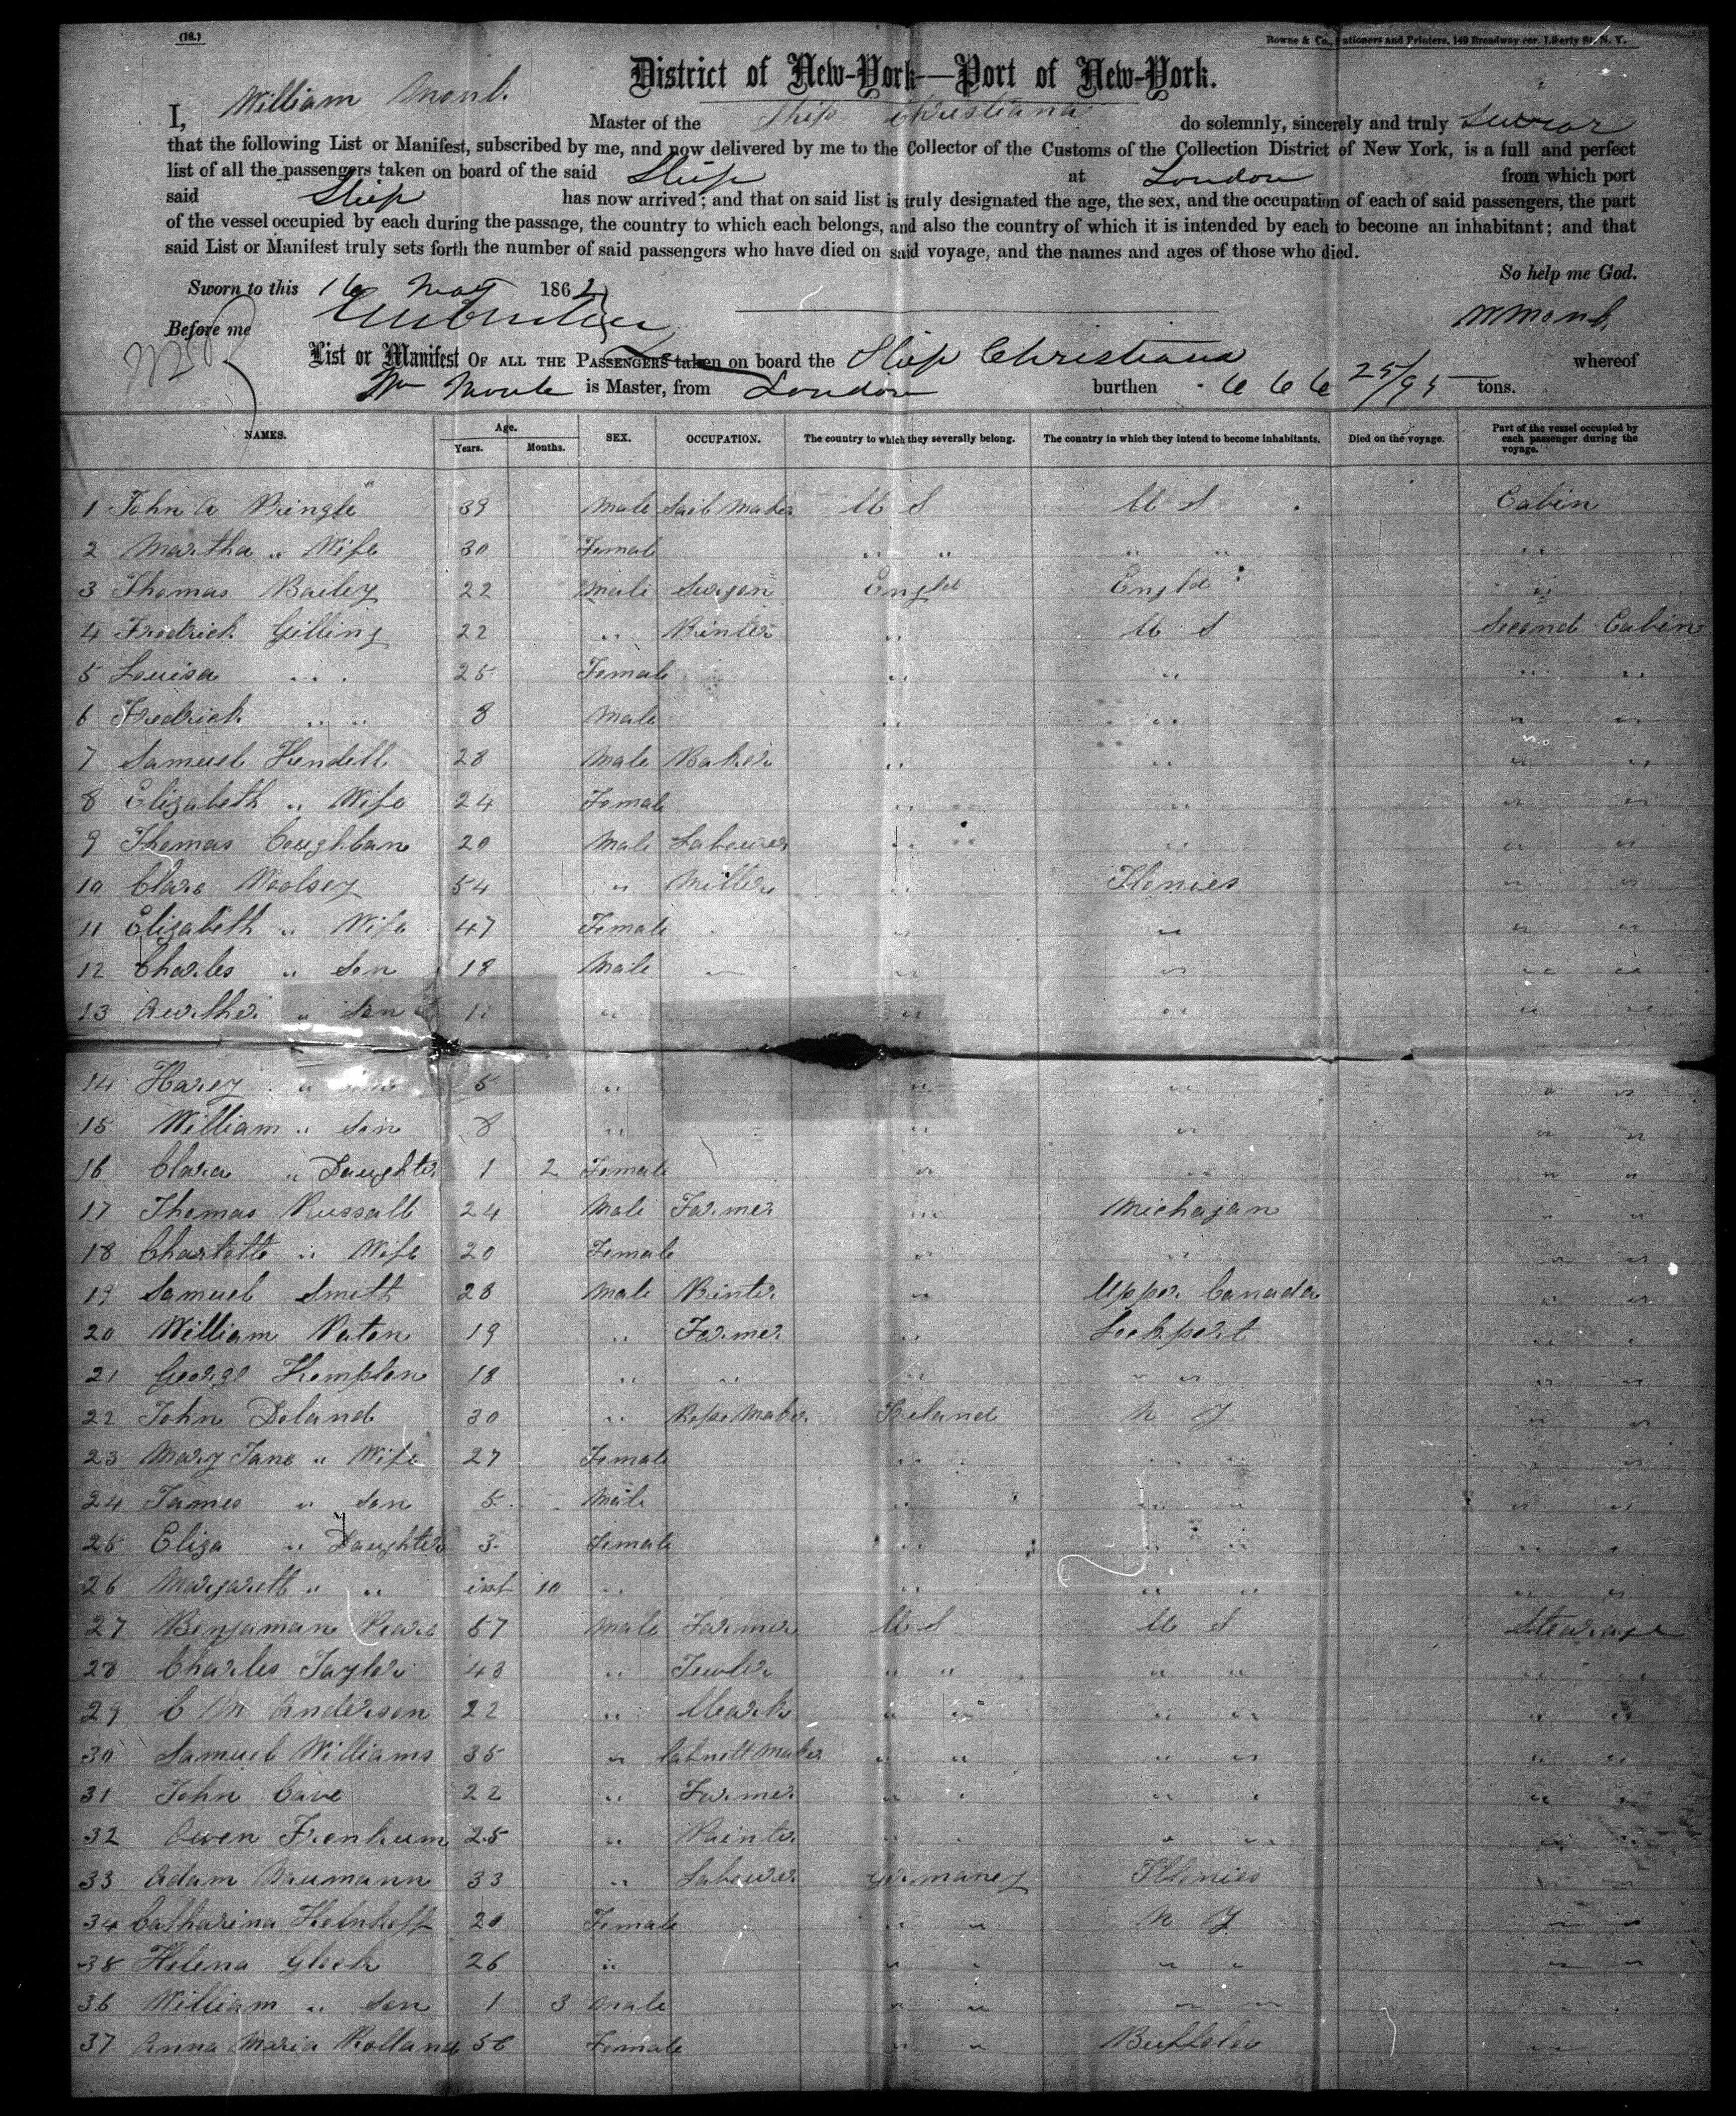 (18.)
Bowne & Co., Stationers and Printers, 149 Broadway cor. Liberty St. N. Y.
District of New-York—Port of New-York.
I, William Master of the Ship Christiana do solemnly, sincerely and truly swear
that the following List or Manifest, subscribed by me, and now delivered by me to the Collector of the Customs of the Collection District of New York, is a full and perfect
list of all the passengers taken on board of the said Ship at London from which port
said Ship has now arrived; and that on said list is truly designated the age, the sex, and the occupation of each of said passengers, the part
of the vessel occupied by each during the passage, the country to which each belongs, and also the country of which it is intended by each to become an inhabitant; and that
said List or Manifest truly sets forth the number of said passengers who have died on said voyage, and the names and ages of those who died.
So help me God.
Sworn to this 16 May 1862
Before me
List or Manifest OF ALL THE PASSENGERS taken on board the Ship Christiana whereof
Wm is Master, from London burthen 666 25/95 tons.
NAMES. Age. Years. Months. SEX. OCCUPATION. The country to which they severally belong. The country in which they intend to become inhabitants. Died on the voyage. Part of the vessel occupied by each passenger during the voyage.
1 John A Pringle 39 Male Sail Maker U S U S Cabin
2 Martha " Wife 30 Female " " " " " "
3 Thomas Bailey 22 Male Surgon Engld Engld "
4 Fredrick Gilling 22 " Printer " U S Second Cabin
5 Louisa " " 25 Female " " " "
6 Fredrick " " 8 Male " " " "
7 Samuel Hendell 28 Male Baker " " " "
8 Elizabeth " Wife 24 Female " " " "
9 Thomas Coughlan 20 Male Labourer " " " "
10 Clare Woolsey 54 " Miller " Ilonies " "
11 Elizabeth " Wife 47 Female " " " "
12 Charles " Son 18 Male " " " "
13 Aurther " Son " " " " "
14 Harey " 5 " " " " "
15 William " Son 8 " " " " "
16 Clara " Daughter 1 2 Female " " " "
17 Thomas Russall 24 Male Farmer " Michajan " "
18 Charlotte " Wife 20 Female " " " "
19 Samuel Smith 28 Male Printer " Upper Canada " "
20 William Paton 19 " Farmer " Lockport " "
21 George Kempton 18 " " " " " " "
22 John Doland 30 " Rope Maker Ireland N Y " "
23 Mary Jane " Wife 27 Female " " " " "
24 James " Son 5 Male " " " " "
25 Eliza " Daughter 3 Female " " " " "
26 Margarett " " inf 10 " " " " " "
27 Benjaman 57 Male Farmer U S U S Stearage
28 Charles Taylor 43 " Jewler " " " " " "
29 C M Anderson 22 " Cleark " " " " " "
30 Samuel Williams 35 " Cabnett Maker " " " " " "
31 John Cave 22 " Farmer " " " " " "
32 Owen Frenkum 25 " Painter " " " " " "
33 Adam Baumann 33 " Labourer Germaney Illonies " "
34 Catharina Helnhoff 20 Female " " N Y " "
35 Helena Gleck 26 " " " " " " "
36 William " Son 1 3 Male " " " " " "
37 Anna Maria Rolland 56 Female " " Buffeloo " "